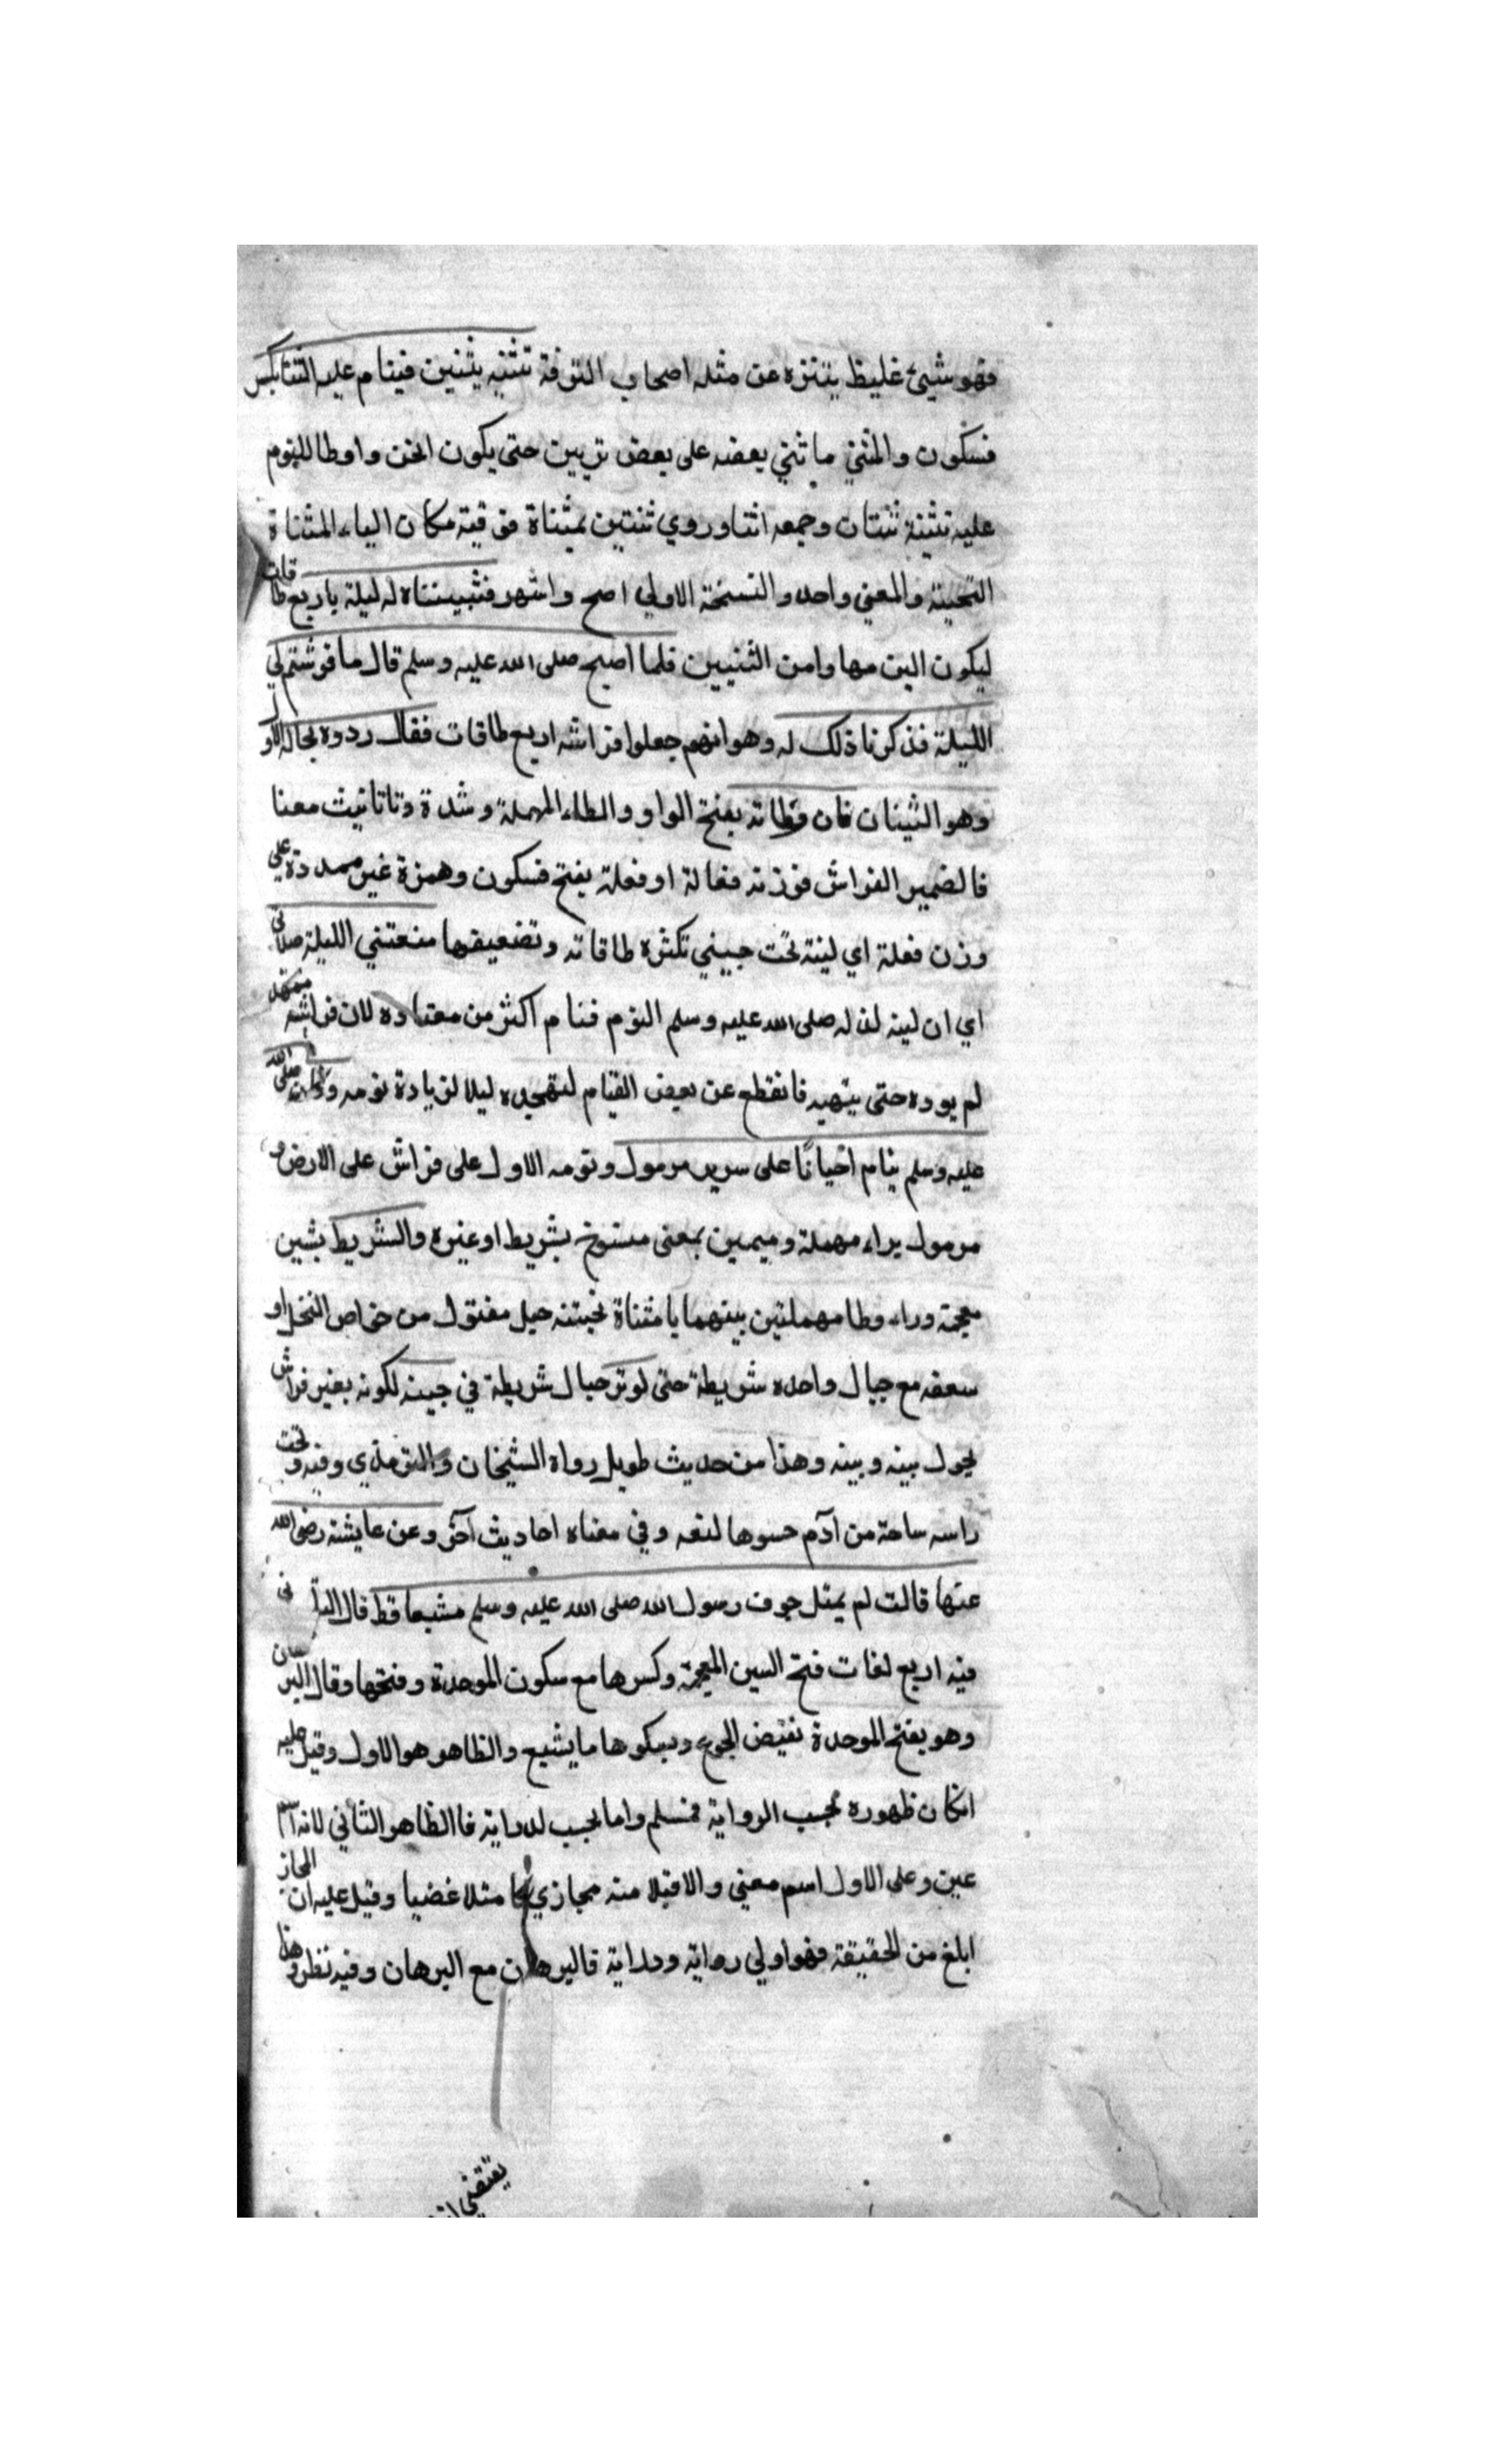 فهو شيئ غليظ يتنزه عن مثله اصحاب الترفة تثنيه بثنيين فينام عليه الثنتا بكس
فسكون والمثني ما ثني بعضه على بعض تربين حتى يكون اخن واوطا للنوم
عليه تثنة ثنتان وجمعه اثتا وروي ثنتين بمثناة فوقية مكان الياء المثناة
التحيتة والمعني واحد والنسخة الاولي اصح واشهر فثبيتناه له ليلة باربع طاقات
ليكون الين مها وامن الثنيين فلما اصبح صلى الله عليه وسلم قال ما فرشتم لي
الليلة فذكرنا ذلك له وهو انهم جعلوا فراشه اربع طاقات فقال ردوه بحاله الاو
وهو الثينان فان وطاته بفتح الواو والطاء المهملة وشدة وتا تانيث معنا
فالضمير الفراش فوزنه فعالة او فعلة بفتح فسكون وهمزة غير ممدودة على
وزن فعلة اي لينة تحت جيبني تكثره طاقاته وتضعيفها منعتني الليلة صلاتي
اي ان لينه لذ له صلى الله عليه وسلم النوم فنام اكثر من معتاده لان فراشه ممهد
لم يوده حتى ينهيه فانقطع عن بعض القيام لتهجده ليلا لزيادة نومه وكان صلى الله
عليه وسلم ينام احيانًا على سرير مرمول ونومه الاول على فراش على الارض و
مرمول براء مهملة وميمين بمعنى منسوخ بشريط او غيره والشريط بشين
معجمة وراء وطا مهملتين بينهما يا مثناة تحبتنه حبل مفتول من خاص النخل او
سعفه مع حبال واحده شريطة حتى لوتر حبال شريطة في جيبنه لكونه بغير فراش
يحول بينه وبينه وهذا من حديث طويل رواه الشيخان والترمذي وفيه وتحت
راسه ساحة من آدم حسوها لنفه وفي معناه احاديث آخر وعن عايشة رضى الله
عنها قالت لم يمثل جوف رسول الله صلى الله عليه وسلم مشبعا قط قال التا نى
فيه اربع لغات فتح السين المعجمة وكسرها مع سكون الموحدة وفتحها وقال البرهان
وهو بفتح الموحدة نقيض الجوع وبسكوها ما يشبع والظاهر هو الاول وقيل عليه
انكان ظهوره بحسب الرواية فمسلم واما بحسب لدراية فا الظاهر الثاني لانه اسم
عين وعلى الاول اسم معني والاقبلا منه مجازي كا مثلا غضبا وقيل عليه ان المجاز
ابلغ من الحقيقة فهو اولي رواية ودراية قالبرهان مع البرهان وفيه نظر وهذا
يقتضي